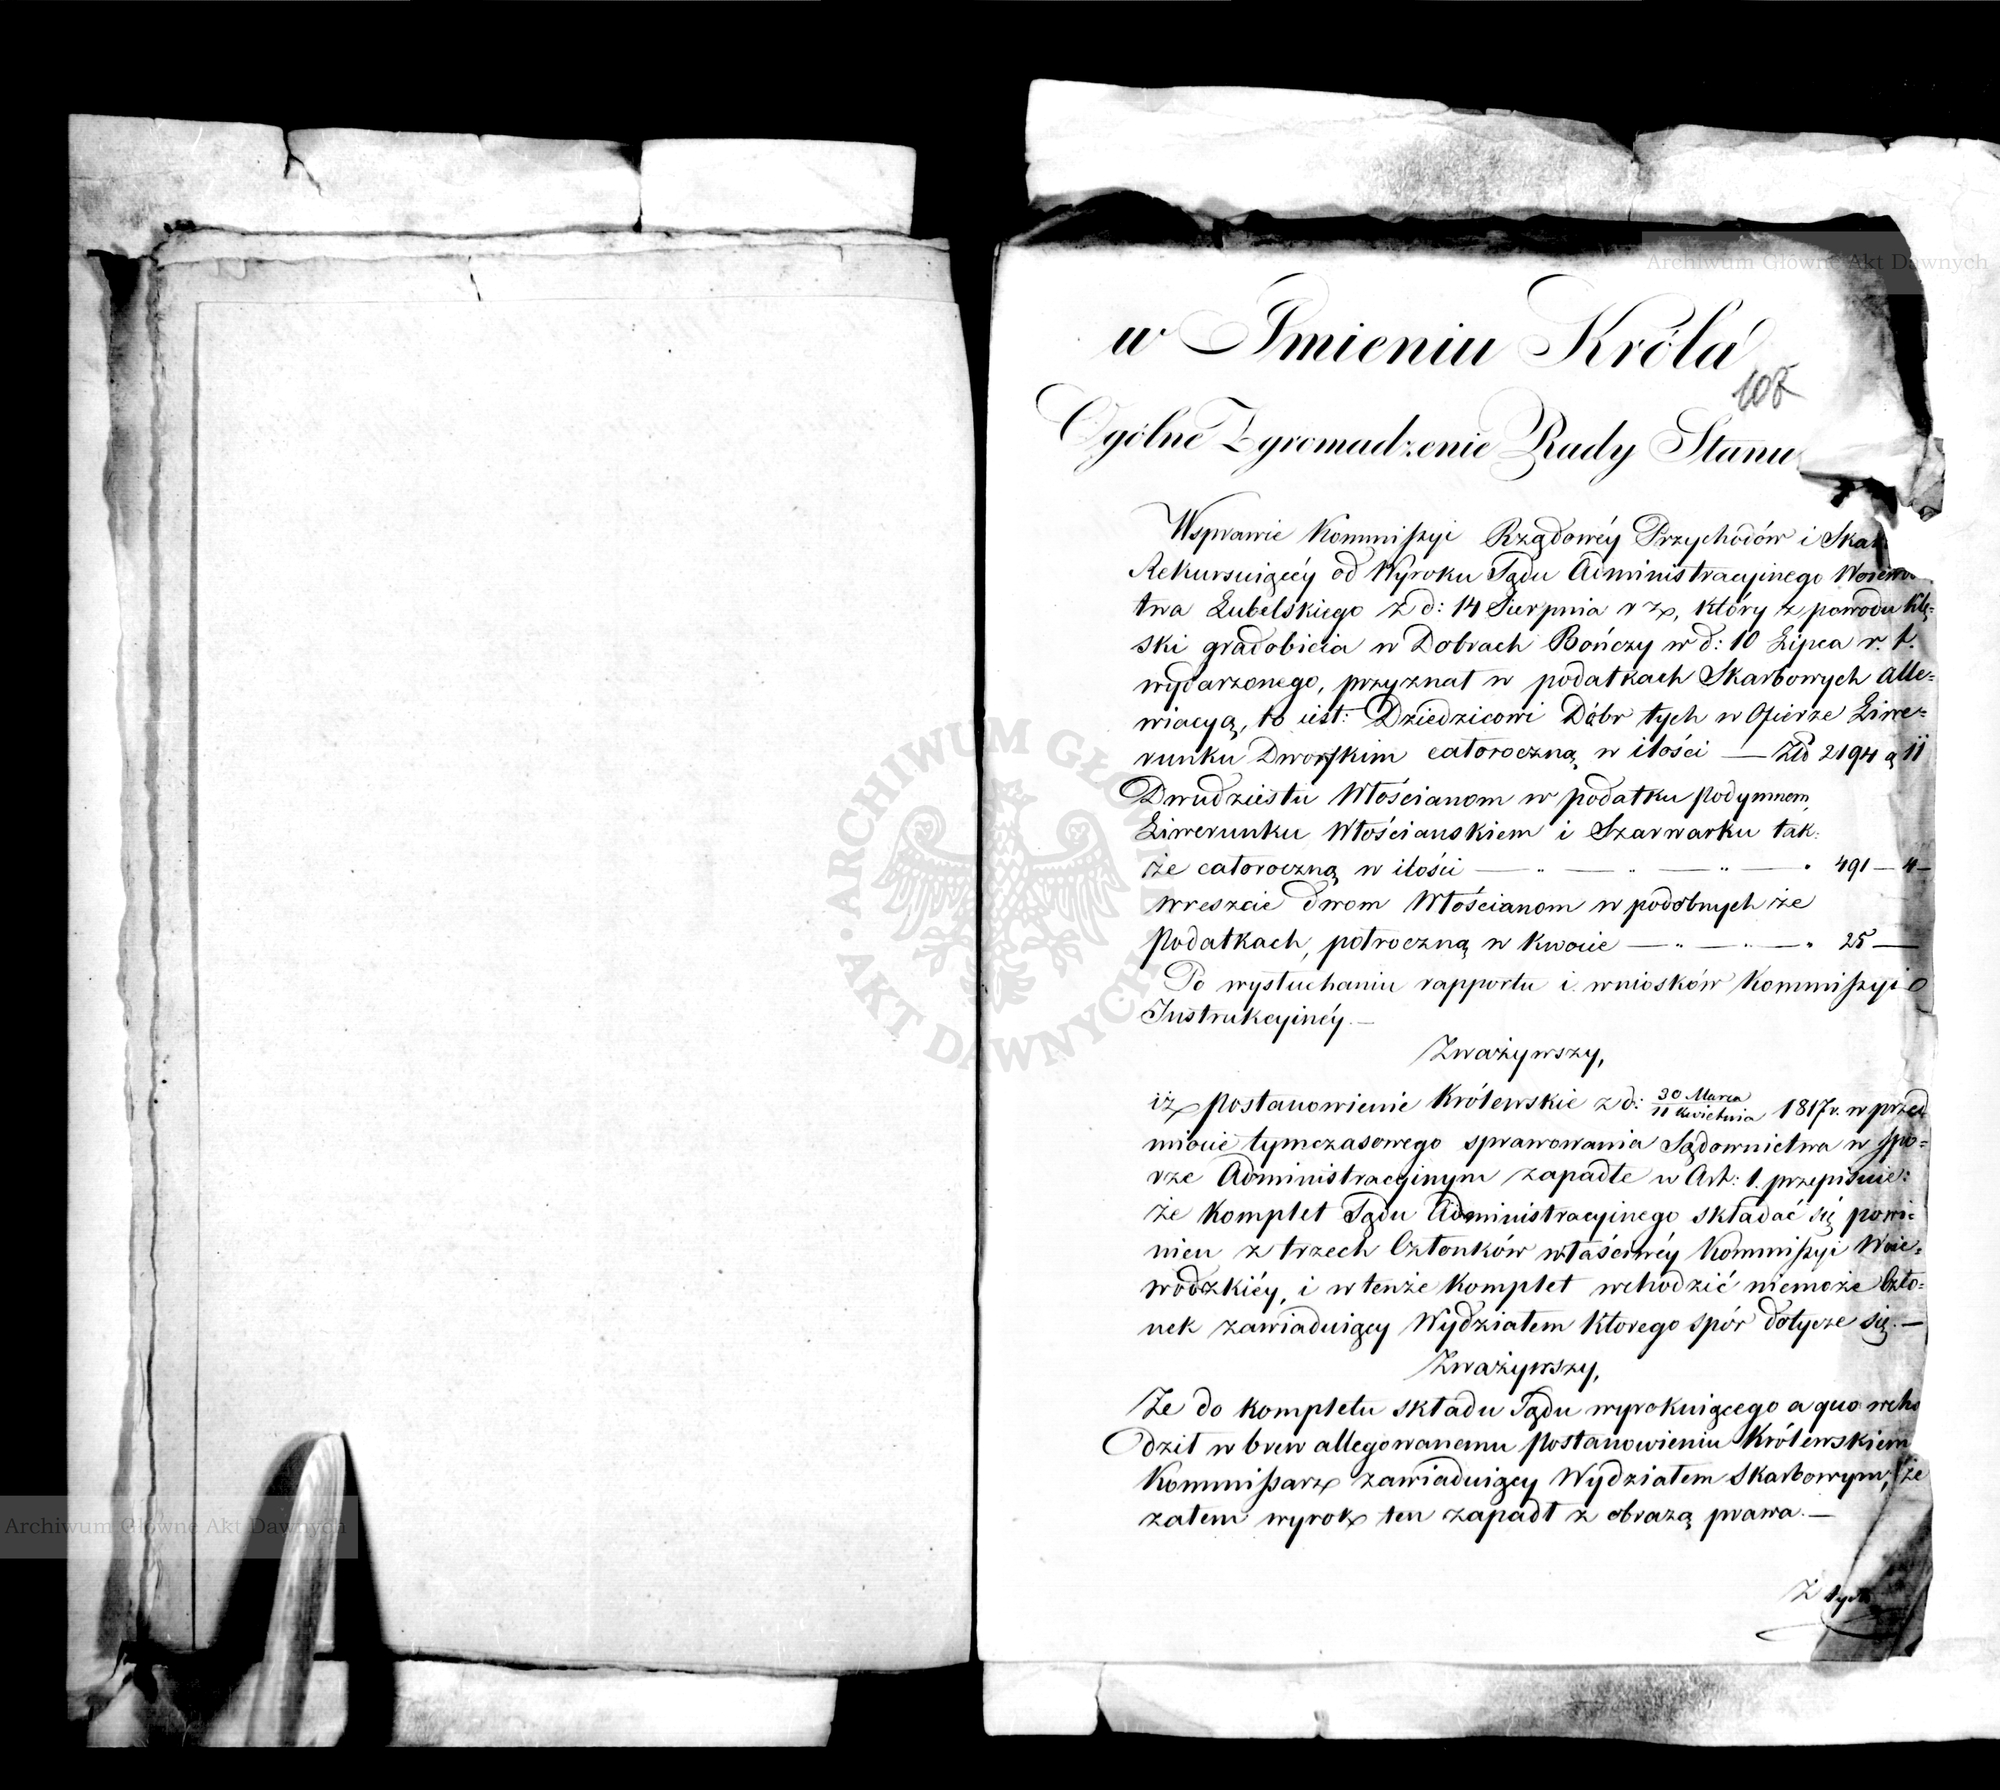 w Imieniu Króla
108
Ogólne Zgromadzenie Rady Stanu
Wsprawie Kommissyi Rządowéy Przychodów i Skar
Rekursuiącéy od Wyroku Sądu Administracyinego Woiewo
twa Lubelskiego z d: 14 Sierpnia r z, który z powodu Klę-
ski gradobicia w Dobrach Bończy w d: 10 Lipca r. t.
wydarzonego, przyznał w podatkach Skarbowych alle-
wiacyą, to iest: Dziedzicowi Dóbr tych w Ofierze Liwe-
runku Dworskim całoroczną w ilości — Złp 2194 g 11
Dwudziestu Włościanom w podatku podymnem
Liwerunku Włościanskiem i Szarwarku tak:
że całoroczną w ilości — „ — „ — „ — „ 491 — 4 —
wreszcie dwom Włościanom w podobnych że
Podatkach, półroczną w kwocie — „ — „ — „ 25 —
Po wysłuchaniu rapportu i wniosków Kommissyi
Instrukcyinéy. —
Zważywszy,
iż postanowienie Królewskie z d: 30 Marca / 11 Kwietnia 1817 r. w przed
miocie tymczasowego sprawowania Sądownictwa w spo-
rze Administracyinym zapadłe w Art: 1. przepisuie:
że Komplet Sądu Administracyinego składać się powi-
nien z trzech Członków właściwéy Kommissyi Woie-
wodzkiéy, i w tenże komplet wchodzić niemoże Czło-
nek zawiaduiący Wydziałem którego spór dotycze się. —
Zważywszy,
Że do kompletu składu Sądu wyrokuiącego a quo wcho
dził w brew allegowanemu postanowieniu Królewskiem
Kommissarz zawiaduiący Wydziałem Skarbowym, że
zatem wyrok ten zapadł z obrazą prawa. —
Z tych
Archiwum Główne Akt Dawnych
Archiwum Główne Akt Dawnych
ARCHIWUM GŁÓWNE AKT DAWNYCH